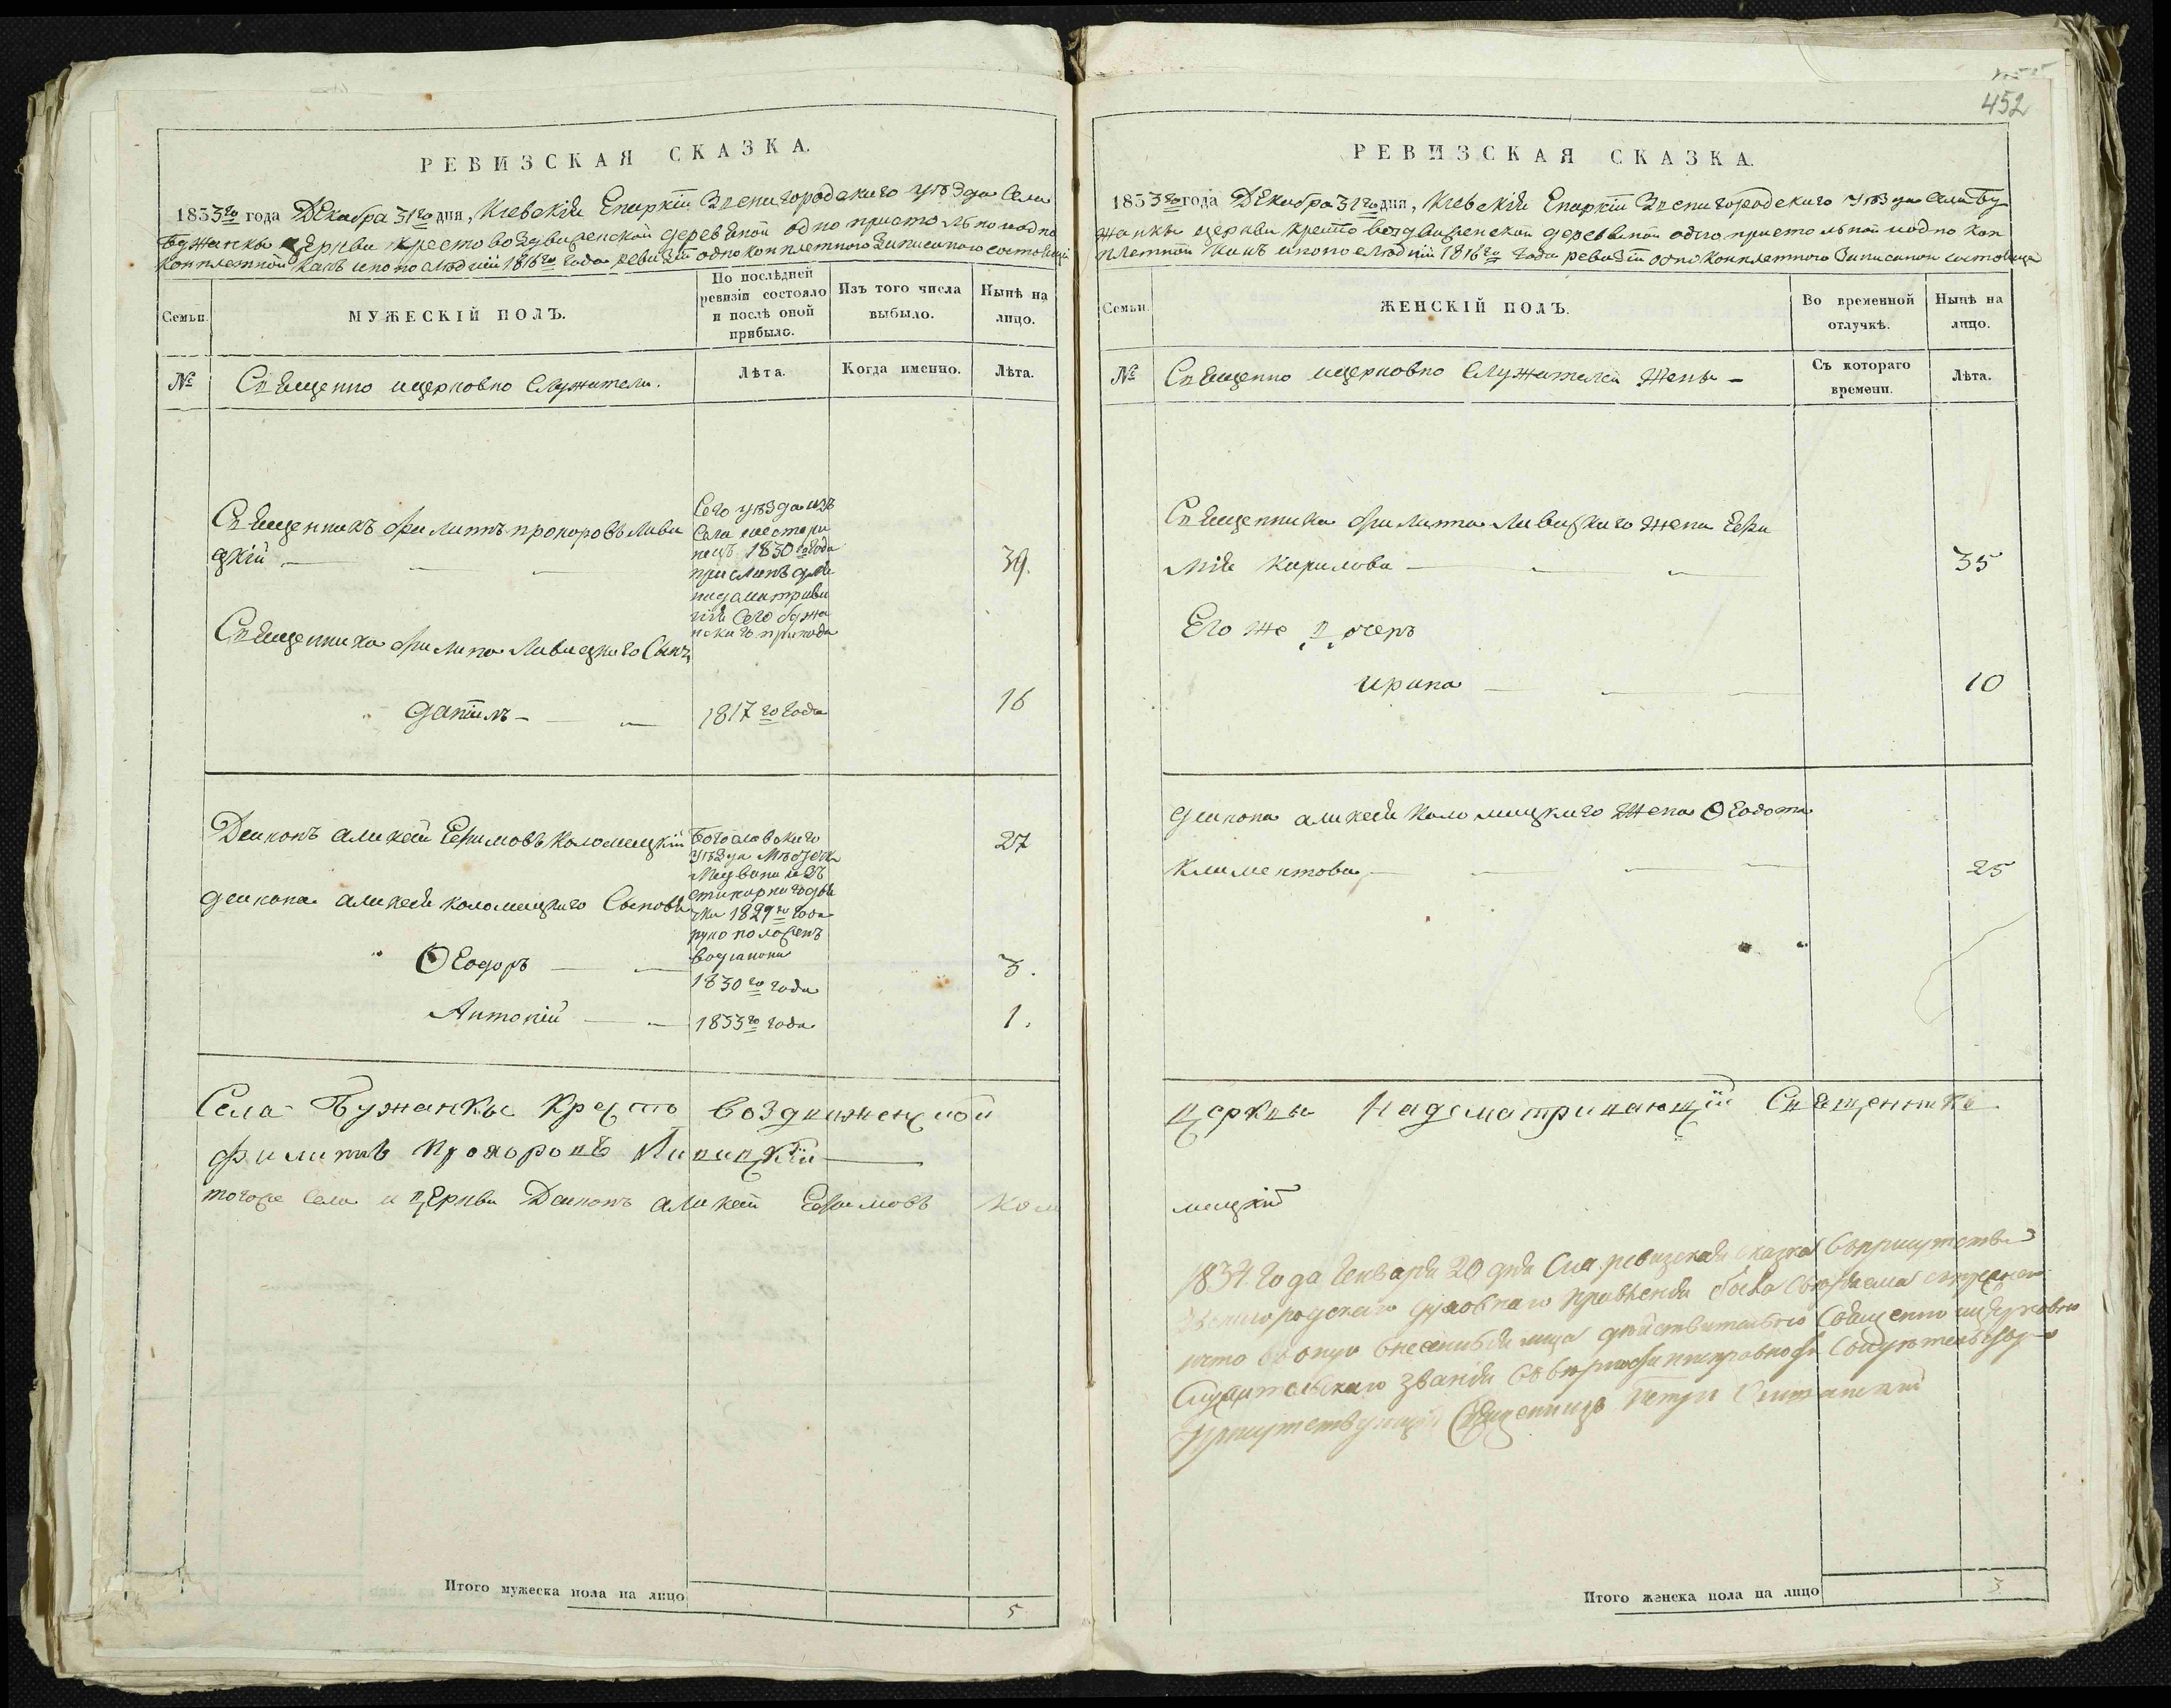 452
РЕВИЗСКАЯ СКАЗКА.
1833го года Декабря 31го дня, Кіевскія Епархіи Звенигородскаго уѣзда Села
Бужанки Церкви Крестовоздвиженской деревяной однопристольной одно
комплетной какъ и по последней 1816го года ревизіи однокомплетною записаною состоящей
Семьи.
МУЖЕСКІЙ ПОЛЪ.
По послѣдней ревизіи состояло и послѣ оной прибыло.
Изъ того числа выбыло.
Нынѣ на лицо.
№
Священно и церковно служители.
Лѣта.
Когда именно.
Лѣта.
Священникъ Филиппъ Прохоровъ Ливи
цкій
Сего уѣзда изъ
Села
1830го года
присланъ для
надсматрива
нія сего Бужа
нскаго прихода
39.
Священника Филипа Ливицкого Сынъ
Даніилъ
1817го года
16
Діаконъ Алексѣй Ефимовъ Коломецкій
Богославскаго
уѣзда Мѣстечка
изъ
1829го года
рукоположенъ
во діакона
27
Діакона Алексѣя Коломецкого Сыновья
Ѳеодоръ
1830го года
3.
Антоній
1833го года
1.
Села Бужанки Кресто воздвиженской
Филиппъ Прохоровъ Ливицкій
тогоже села и Церкви Діаконъ Алексѣй Ефимовъ Коло
Итого мужеска пола на лицо
5
РЕВИЗСКАЯ СКАЗКА.
1833го года Декабря 31го дня, Кіевскія Епархіи Звенигородскаго Уѣзда Села Бу
жанки церкви Крестовоздвиженской деревяной однопристольной и одно ком
плетной какъ и по последней 1816го года ревизіи однокомплетною записаною состоящей
Семьи.
ЖЕНСКІЙ ПОЛЪ.
Во временной отлучкѣ.
Нынѣ на лицо.
№
Священно и церковно служителей жены
Съ котораго времени.
Лѣта.
Священника Филиппа Ливицкаго жена Ефи
мія Кирилова
35
Его же дочерь
Ирина
10
Діакона Алексѣя Коломецкаго жена Ѳеодота
Климентова
25
церквы надсматривающій Священникъ
мецкій
1834 года Генваря 20 дня Сія ревизская сказка въ присутствіи
Звенигородскаго духовнаго правленія была
что въ оную внесенныя лица дѣйствительно Священно и Церковно
Служительскаго званія
Присутствующій Священникъ Петръ
Итого женска пола на лицо
3